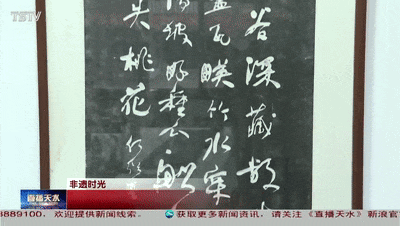 TSTV
谷深藏数
盖瓦映竹水穿
坡可种瓜船
失桃花
非遗时光
直播天水
889100，欢迎提供新闻线索。 获取更多新闻资讯，请关注《直播天水》新浪官